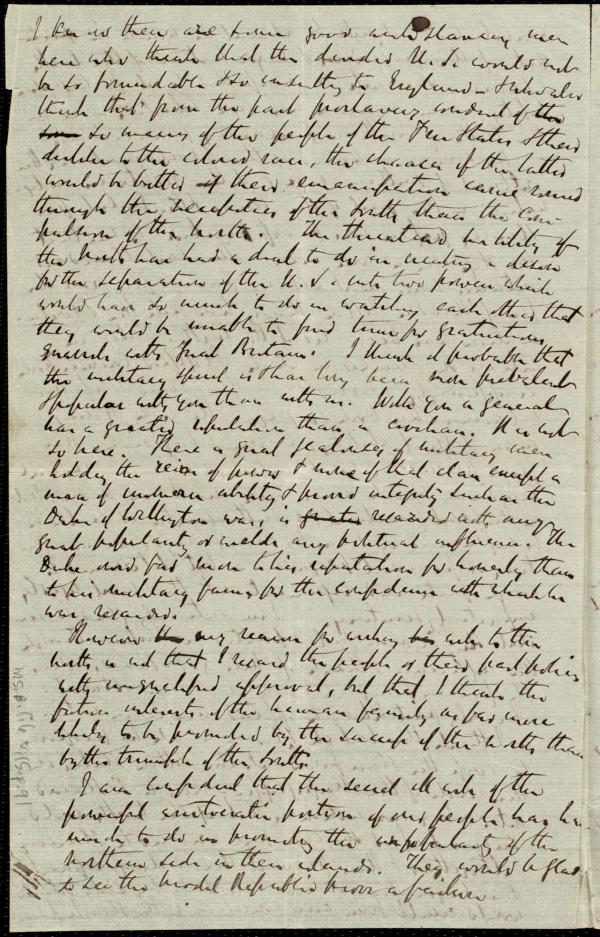 I know there are some good antislavery men
here who think that the divided U.S. would not
be so formidable & so insulting to England - & who also
think that from the past proslavery conduct of the
so many of the people of the Free States & their
dislike to the colored race, the chances of the latter
would be better if their emancipation came round
through the necessities of the South than the Com-
pulsion of the North. The threatened hostility of
the North has had a deal to do in creating a desire
for the separation of the U.S. into two powers which
would have so much to do in watching each other that
they would be unable to find time for gratuitous
quarrels with Great Britain. I think it probable that
the military spirit is & has long been more prevalent
& popular with you than with us. With you a general
has a greater reputation than a civilian. It is not
so here. There is great jealousy of military men
holding the reins of power & none of that class except a
man of uncommon ability & proved integrity such as the
Duke of Wellington was, is regarded with any
great popularity or wields any political influence. The
Duke owed far more to his reputation for honesty than
to his military fame, for the confidence with which he
was regarded.
However my reason for wishing well to the
North is not that I regard the people or their past policy
with unqualified approval, but that I think the
future interests of the human family as far more
likely to be promoted by the success of the North than
by the triumph of the South.
I am confident that the secret ill will of the
powerful aristocratic portion of our people has had
much to do in promoting the unpopularity of the
northern side in these islands. They would be glad
to see the Model Republic prove a failure.